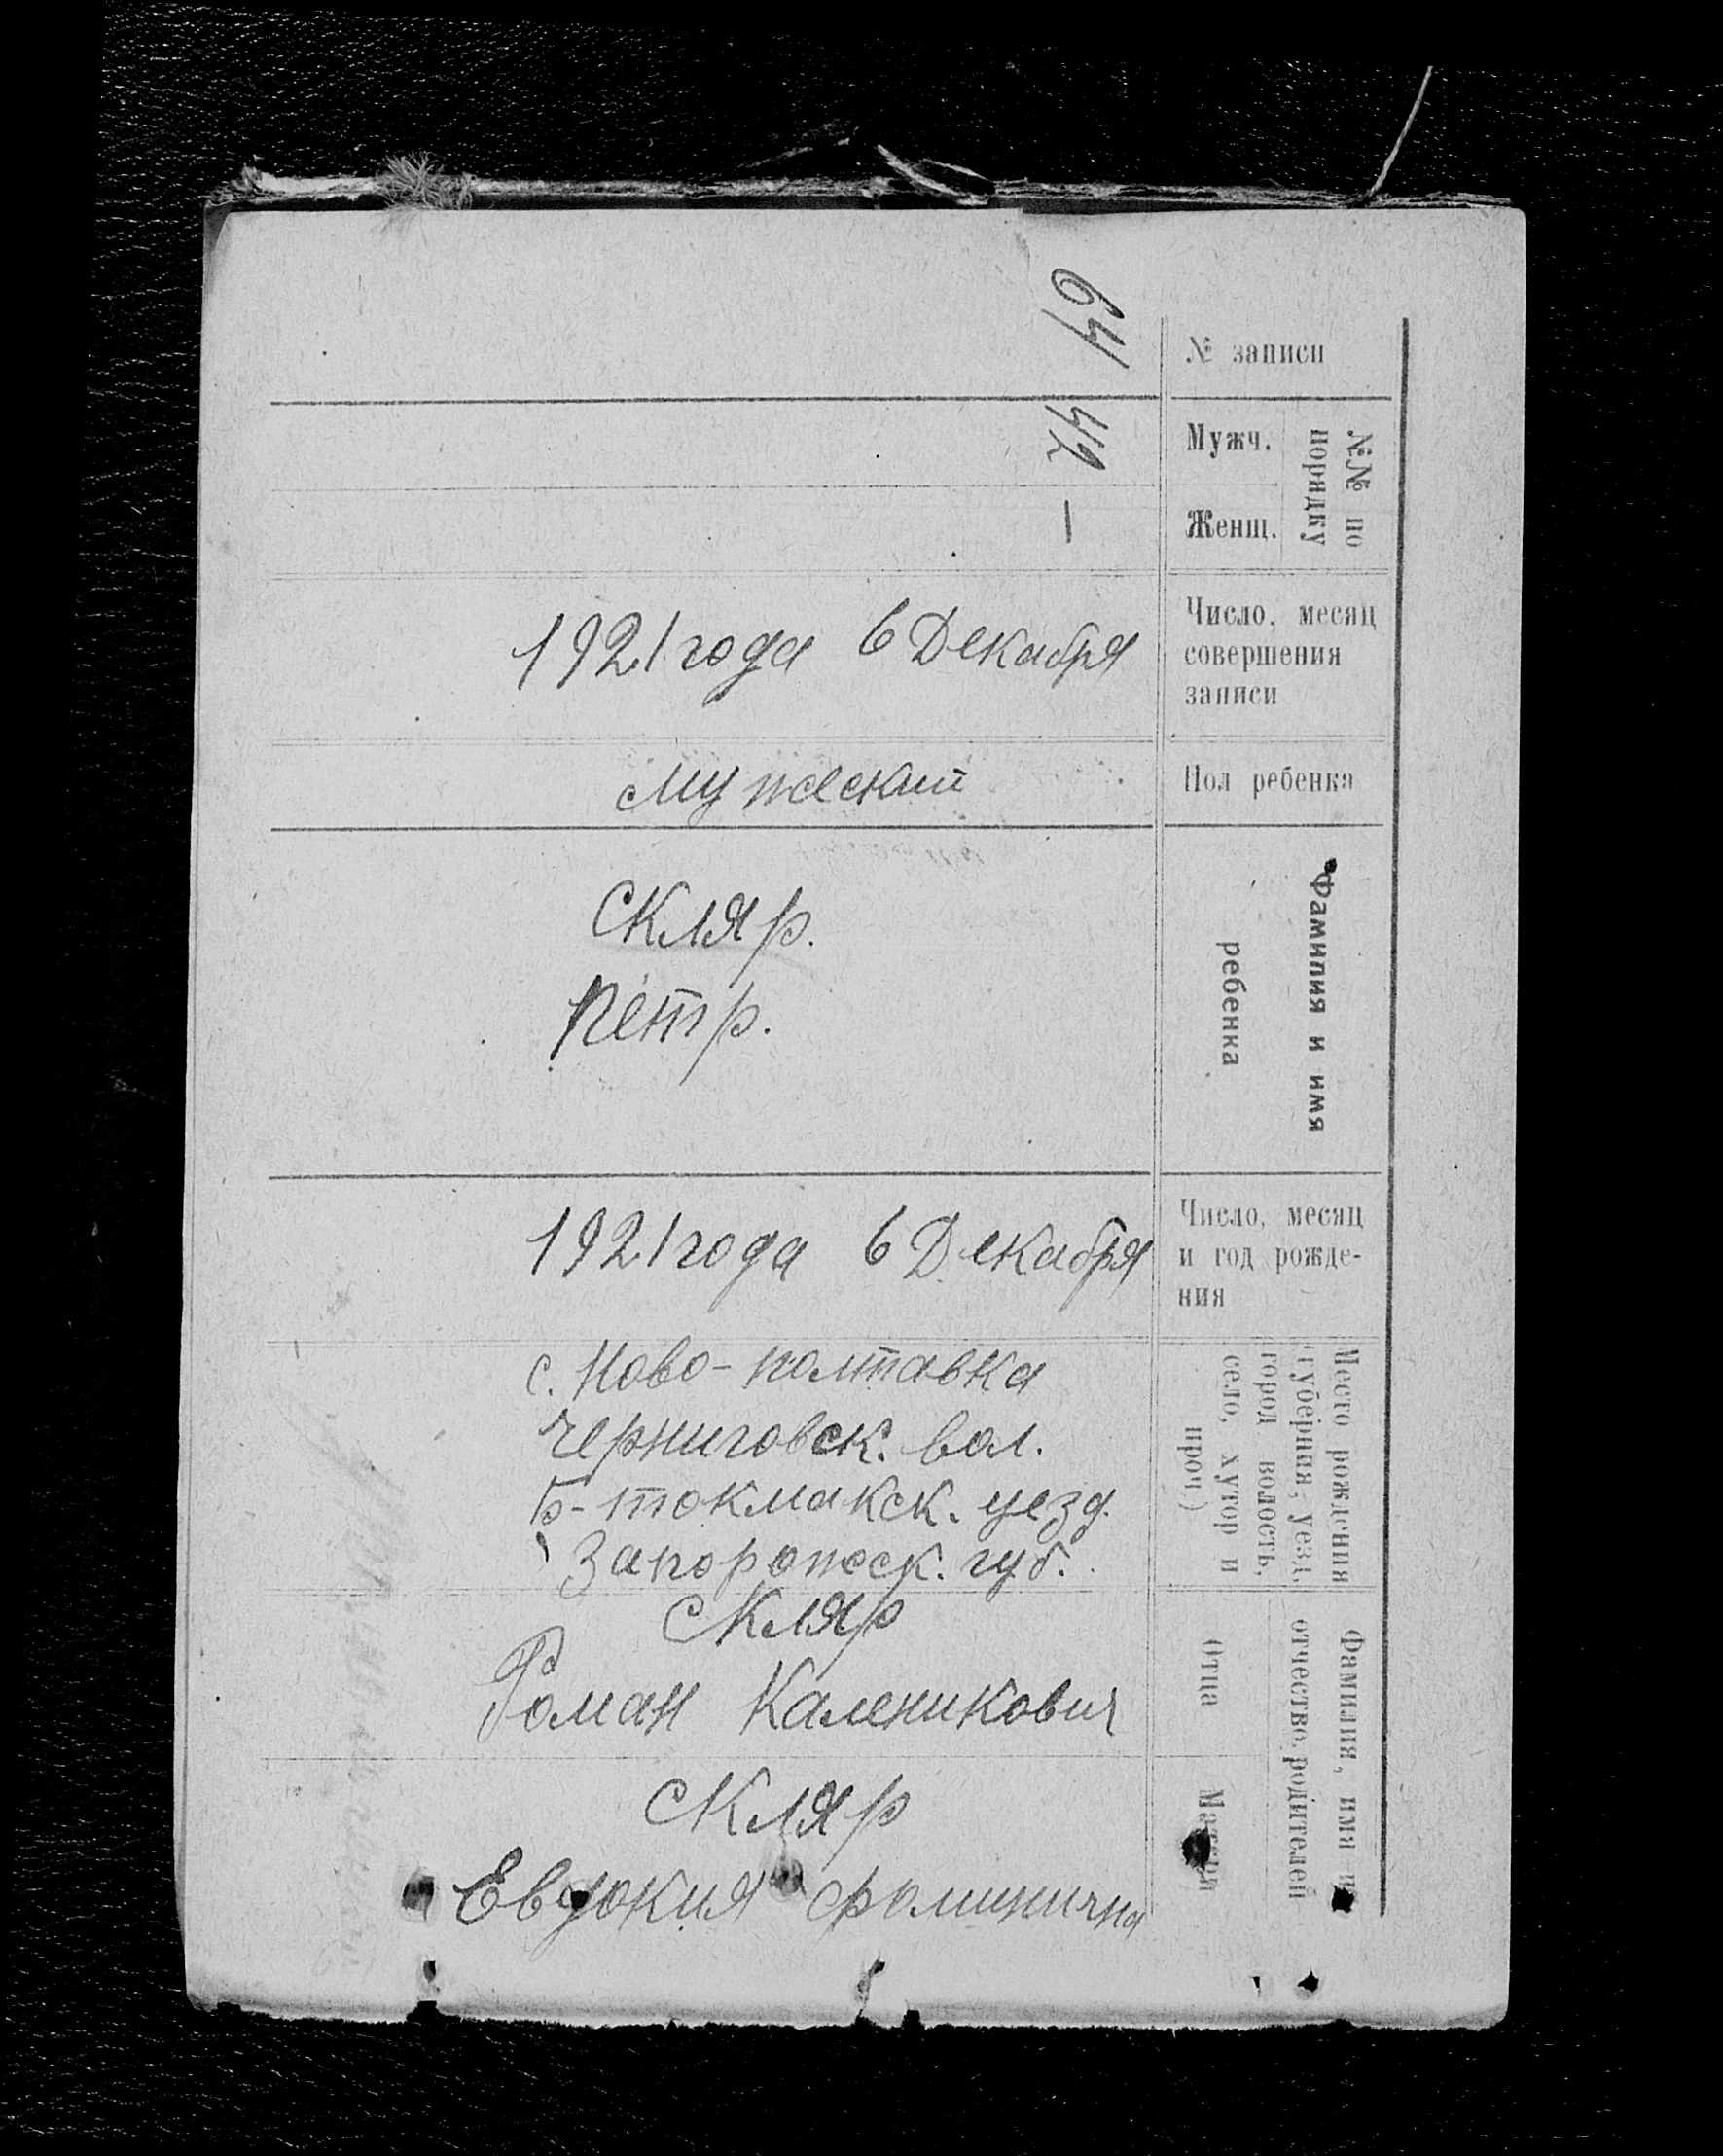 № записи
64
№№ по порядку
Мужч.
42
Женщ.
—
Число, месяц
совершения
записи
1921 года 6 Декабря
Пол ребенка
Мужеский
Фамилия и имя
ребенка
Скляр.
Петр.
Число, месяц
и год рожде-
ния
1921 года 6 Декабря
Место рождения
(губерния, уезд,
город волость,
село, хутор и
проч)
с. Ново-полтавка
Черниговск. вол.
Б-токмакск. уезд.
Запорожск. губ.
Фамилия, имя и
отчество родителей
Отца
Скляр
Роман Каленикович
Матери
Скляр
Евдокия Фоминична